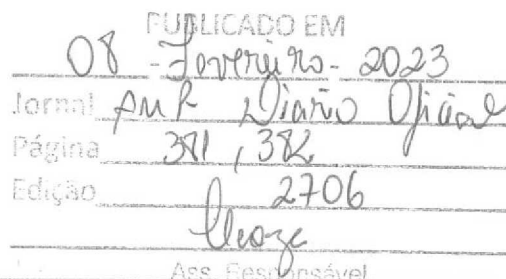 PUBLICADO EM
08 - Fevereiro - 2023
Jornal AMP Diário Oficial
Página 381, 382
Edição 2706
Ass. Responsável